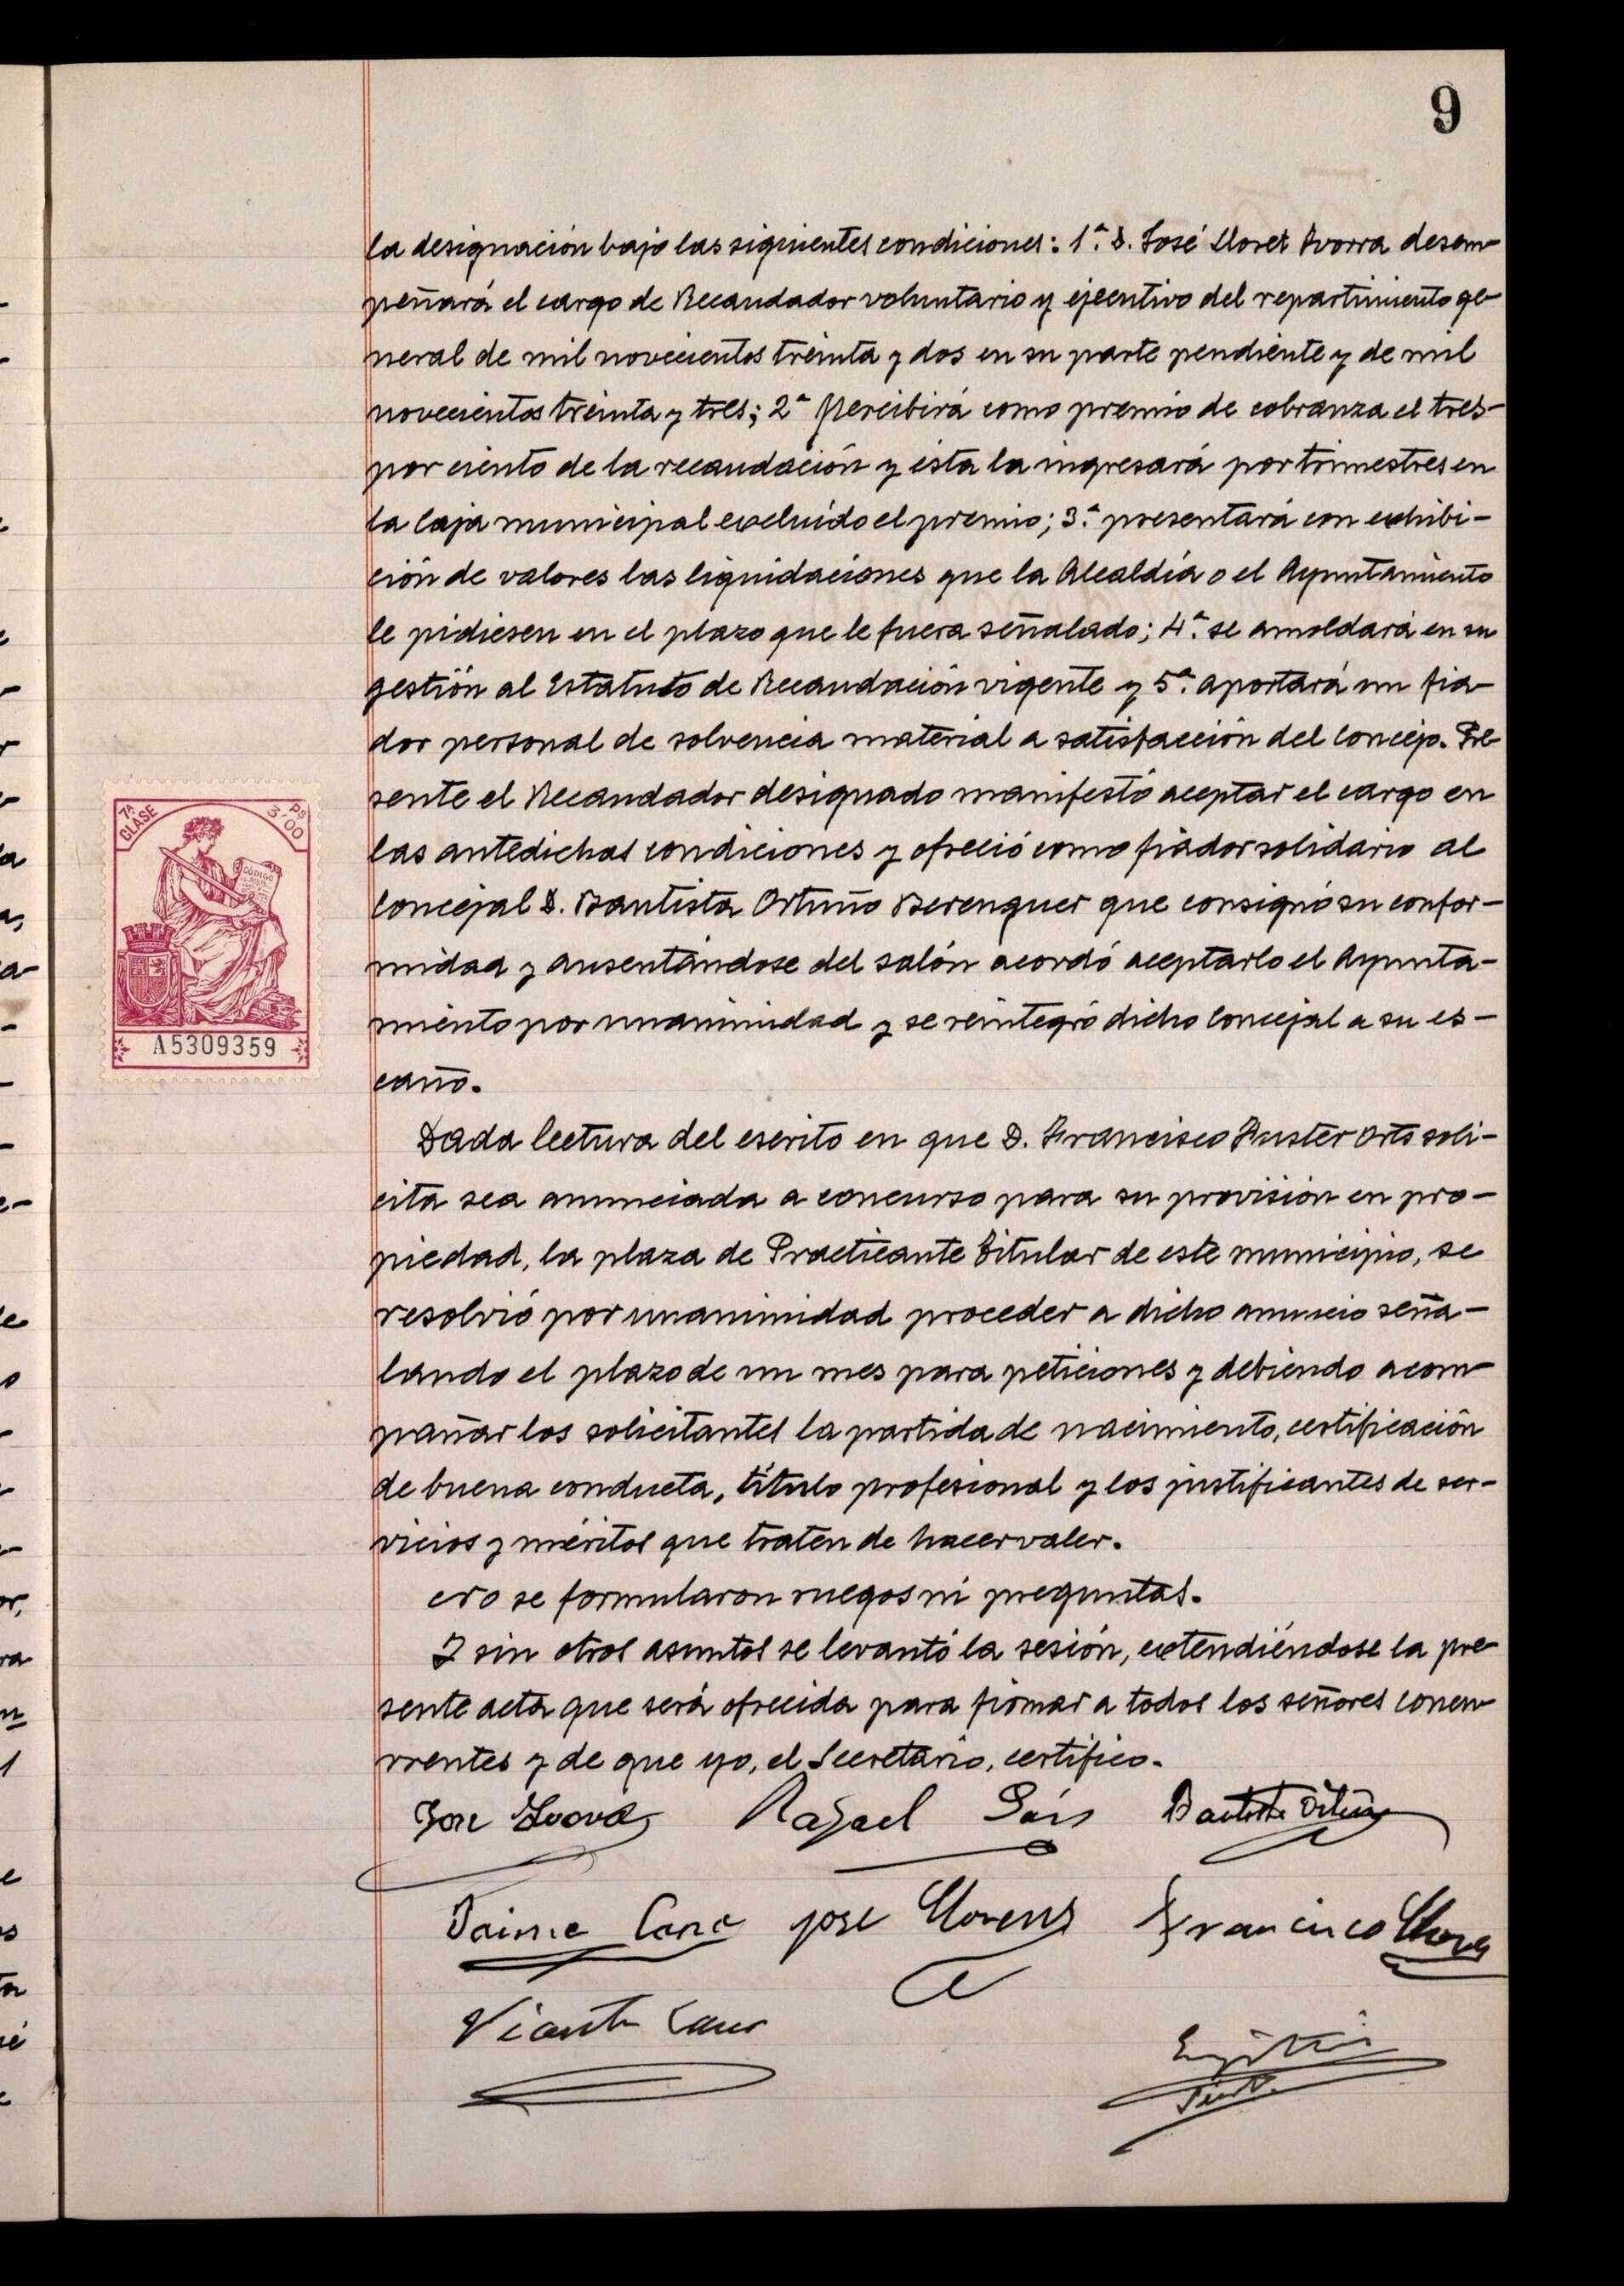 9
la designación bajo las siguientes condiciones: 1.ª D. José Lloret Ivorra desem-
peñará el cargo de Recaudador voluntario y ejecutivo del repartimiento ge-
neral de mil novecientos treinta y dos en su parte pendiente y de mil
novecientos treinta y tres; 2ª Percibirá como premio de cobranza el tres-
por ciento de la recaudación y ésta la ingresará por trimestres en
la Caja municipal excluido el premio; 3.ª presentará con exhibi-
ción de valores las liquidaciones que la Alcaldía o el Ayuntamiento
le pidiesen en el plazo que le fuera señalado; 4.ª se amoldará en su
gestión al Estatuto de Recaudación vigente y 5.ª aportará un fia-
dor personal de solvencia material a satisfacción del Concejo. Pre-
sente el Recaudador designado manifestó aceptar el cargo en
las antedichas condiciones y ofreció como fiador solidario al
Concejal D. Bautista Ortuño Berenguer que consignó su confor-
midad y ausentándose del salón acordó aceptarlo el Ayunta-
miento por unanimidad y se reintegró dicho Concejal a su es-
caño.
7ª CLASE
Ps 3'00
CÓDIGO
A5309359
Dada lectura del escrito en que D. Francisco Fuster Orts soli-
cita sea anunciada a concurso para su provisión en pro-
piedad, la plaza de Practicante Titular de este municipio, se
resolvió por unanimidad proceder a dicho anuncio seña-
lando el plazo de un mes para peticiones y debiendo acom-
pañar los solicitantes la partida de nacimiento, certificación
de buena conducta, título profesional y los justificantes de ser-
vicios y méritos que traten de hacer valer.
No se formularon ruegos ni preguntas.
Y sin otros asuntos se levantó la sesión, extendiéndose la pre-
sente acta que será ofrecida para firmar a todos los señores concu-
rrentes y de que yo, el Secretario, certifico.
José Rafael Bautista Ortuño
Jaime Cano José Llorens Francisco
Vicente Cano